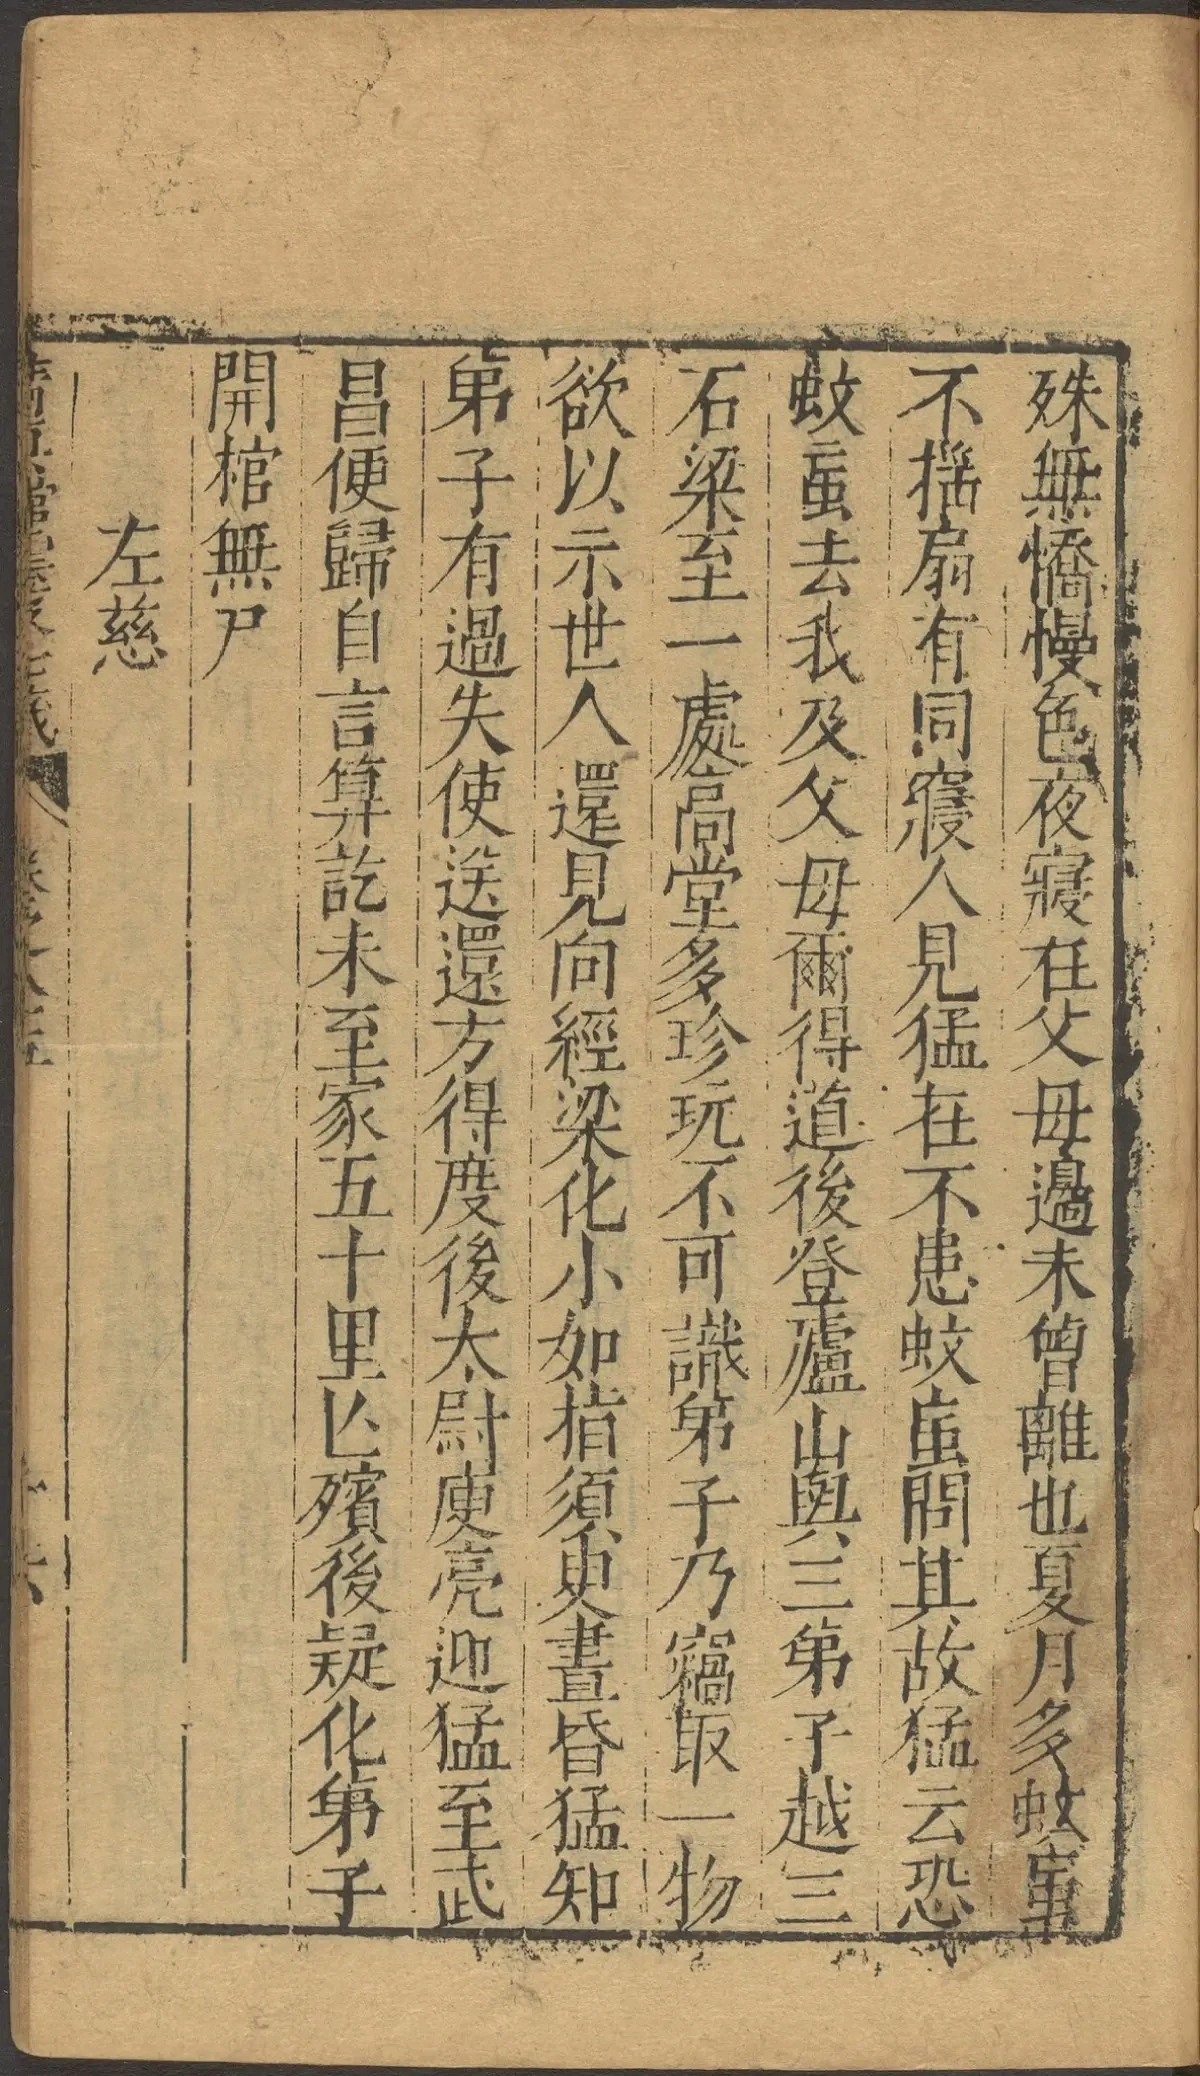 殊無憍慢色夜寢在父母邊未曾離也夏月多蚊䖟
不揺扇有同寢人見猛在不患蚊䖟問其故猛云恐
蚊䖟去我及父母爾得道後登廬山與三弟子越三
石梁至一處高堂多珍玩不可識弟子乃竊取一物
欲以示世人還見向經梁化小如指須臾晝昏猛知
弟子有過失使送還方得度後太尉庾亮迎猛至武
昌便歸自言算訖未至家五十里亡殯後疑化弟子
開棺無尸
左慈